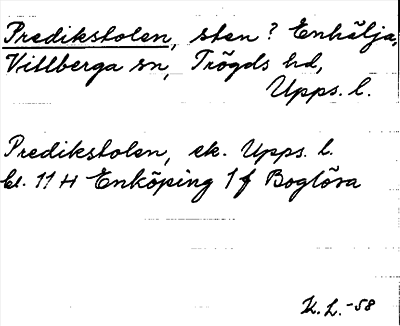 Predikstolen, sten? Enhälja,
Villberga sn, Trögds hd,
Upps. l.
Predikstolen, ek. Upps. l.
bl. 11 H Enköping 1 f Boglösa
K. L. -58